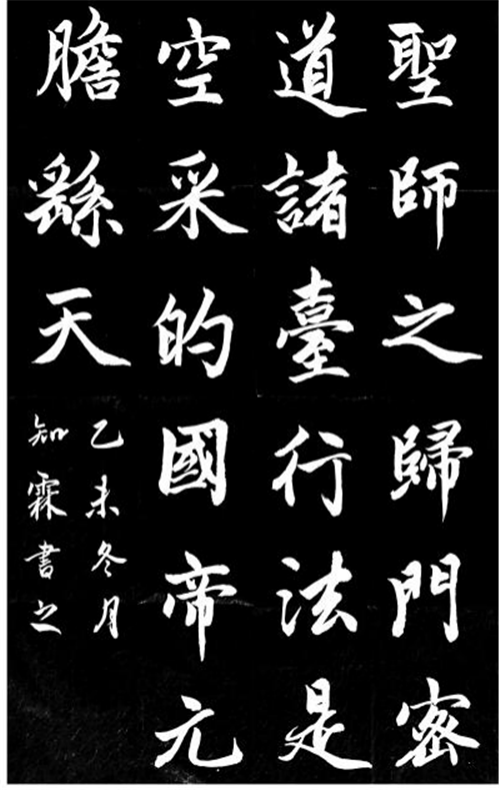 聖師之歸門密
道諸臺行法是
空采的國帝元
膽繇天
乙未冬月
知霖書之